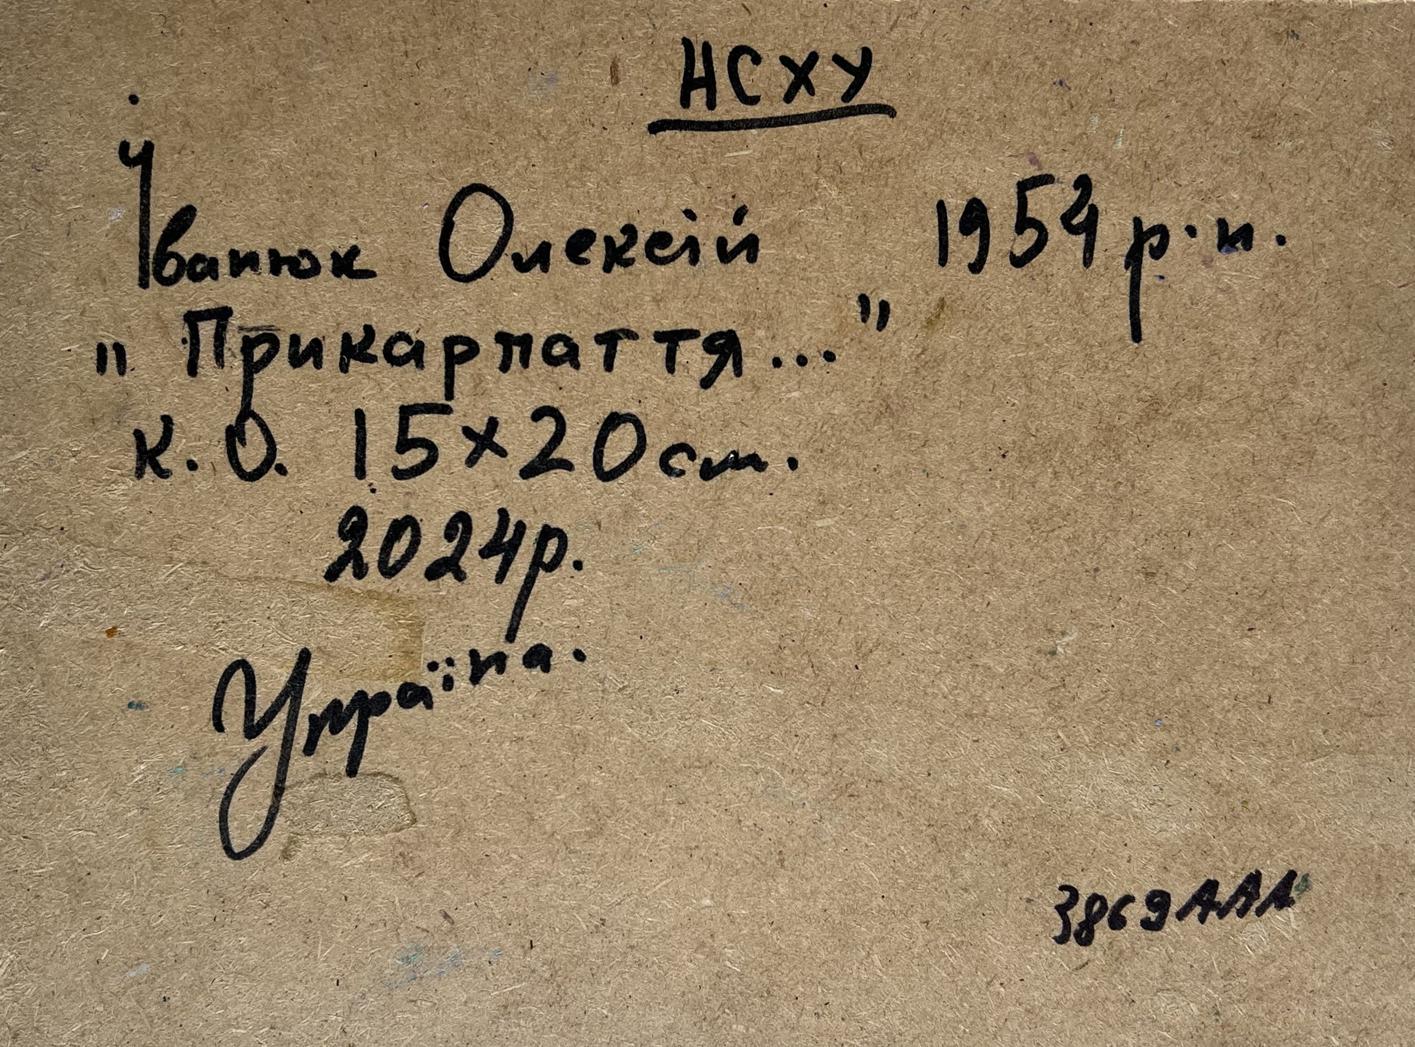 НСХУ
Іванюк Олексій 1954 р.н.
"Прикарпаття..."
к.О. 15×20 см.
2024р.
Україна.
3869ААА